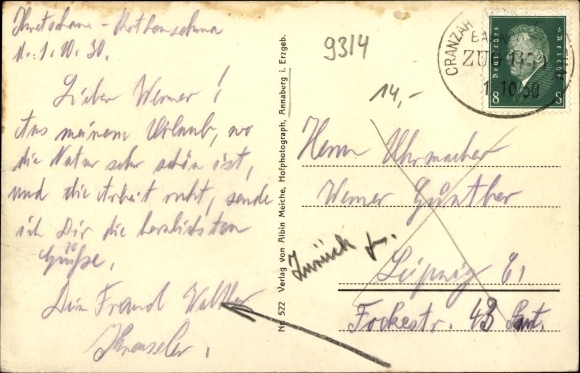 1.10.30.
Lieber Werner!
Aus meinem Urlaub, wo
die Natur sehr schön ist,
und die Arbeit ruht, sende
ich Dir die herzlichsten
Grüße.
Dein Freund Walter
No. 522 Verlag von Albin Meiche, Hofphotograph, Annaberg i. Erzgeb.
9314
14,-
CRANZAH
ZUG
1.10.30
Deutsches Reich
8 8
Herrn Uhrmacher
Werner Günther
Zurück
Leipzig C1
Fockestr. 43 Part.